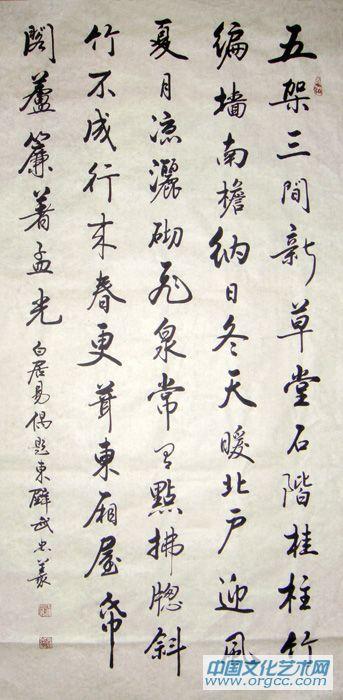 五架三間新草堂石階桂柱竹
編墙南檐納日冬天暖北户迎風
夏月凉灑砌飛泉常有點拂牕斜
竹不成行来春更葺東廂屋帋
閣蘆簾著孟光
白居易偶題東壁武忠義
中国文化艺术网
www.orgcc.com